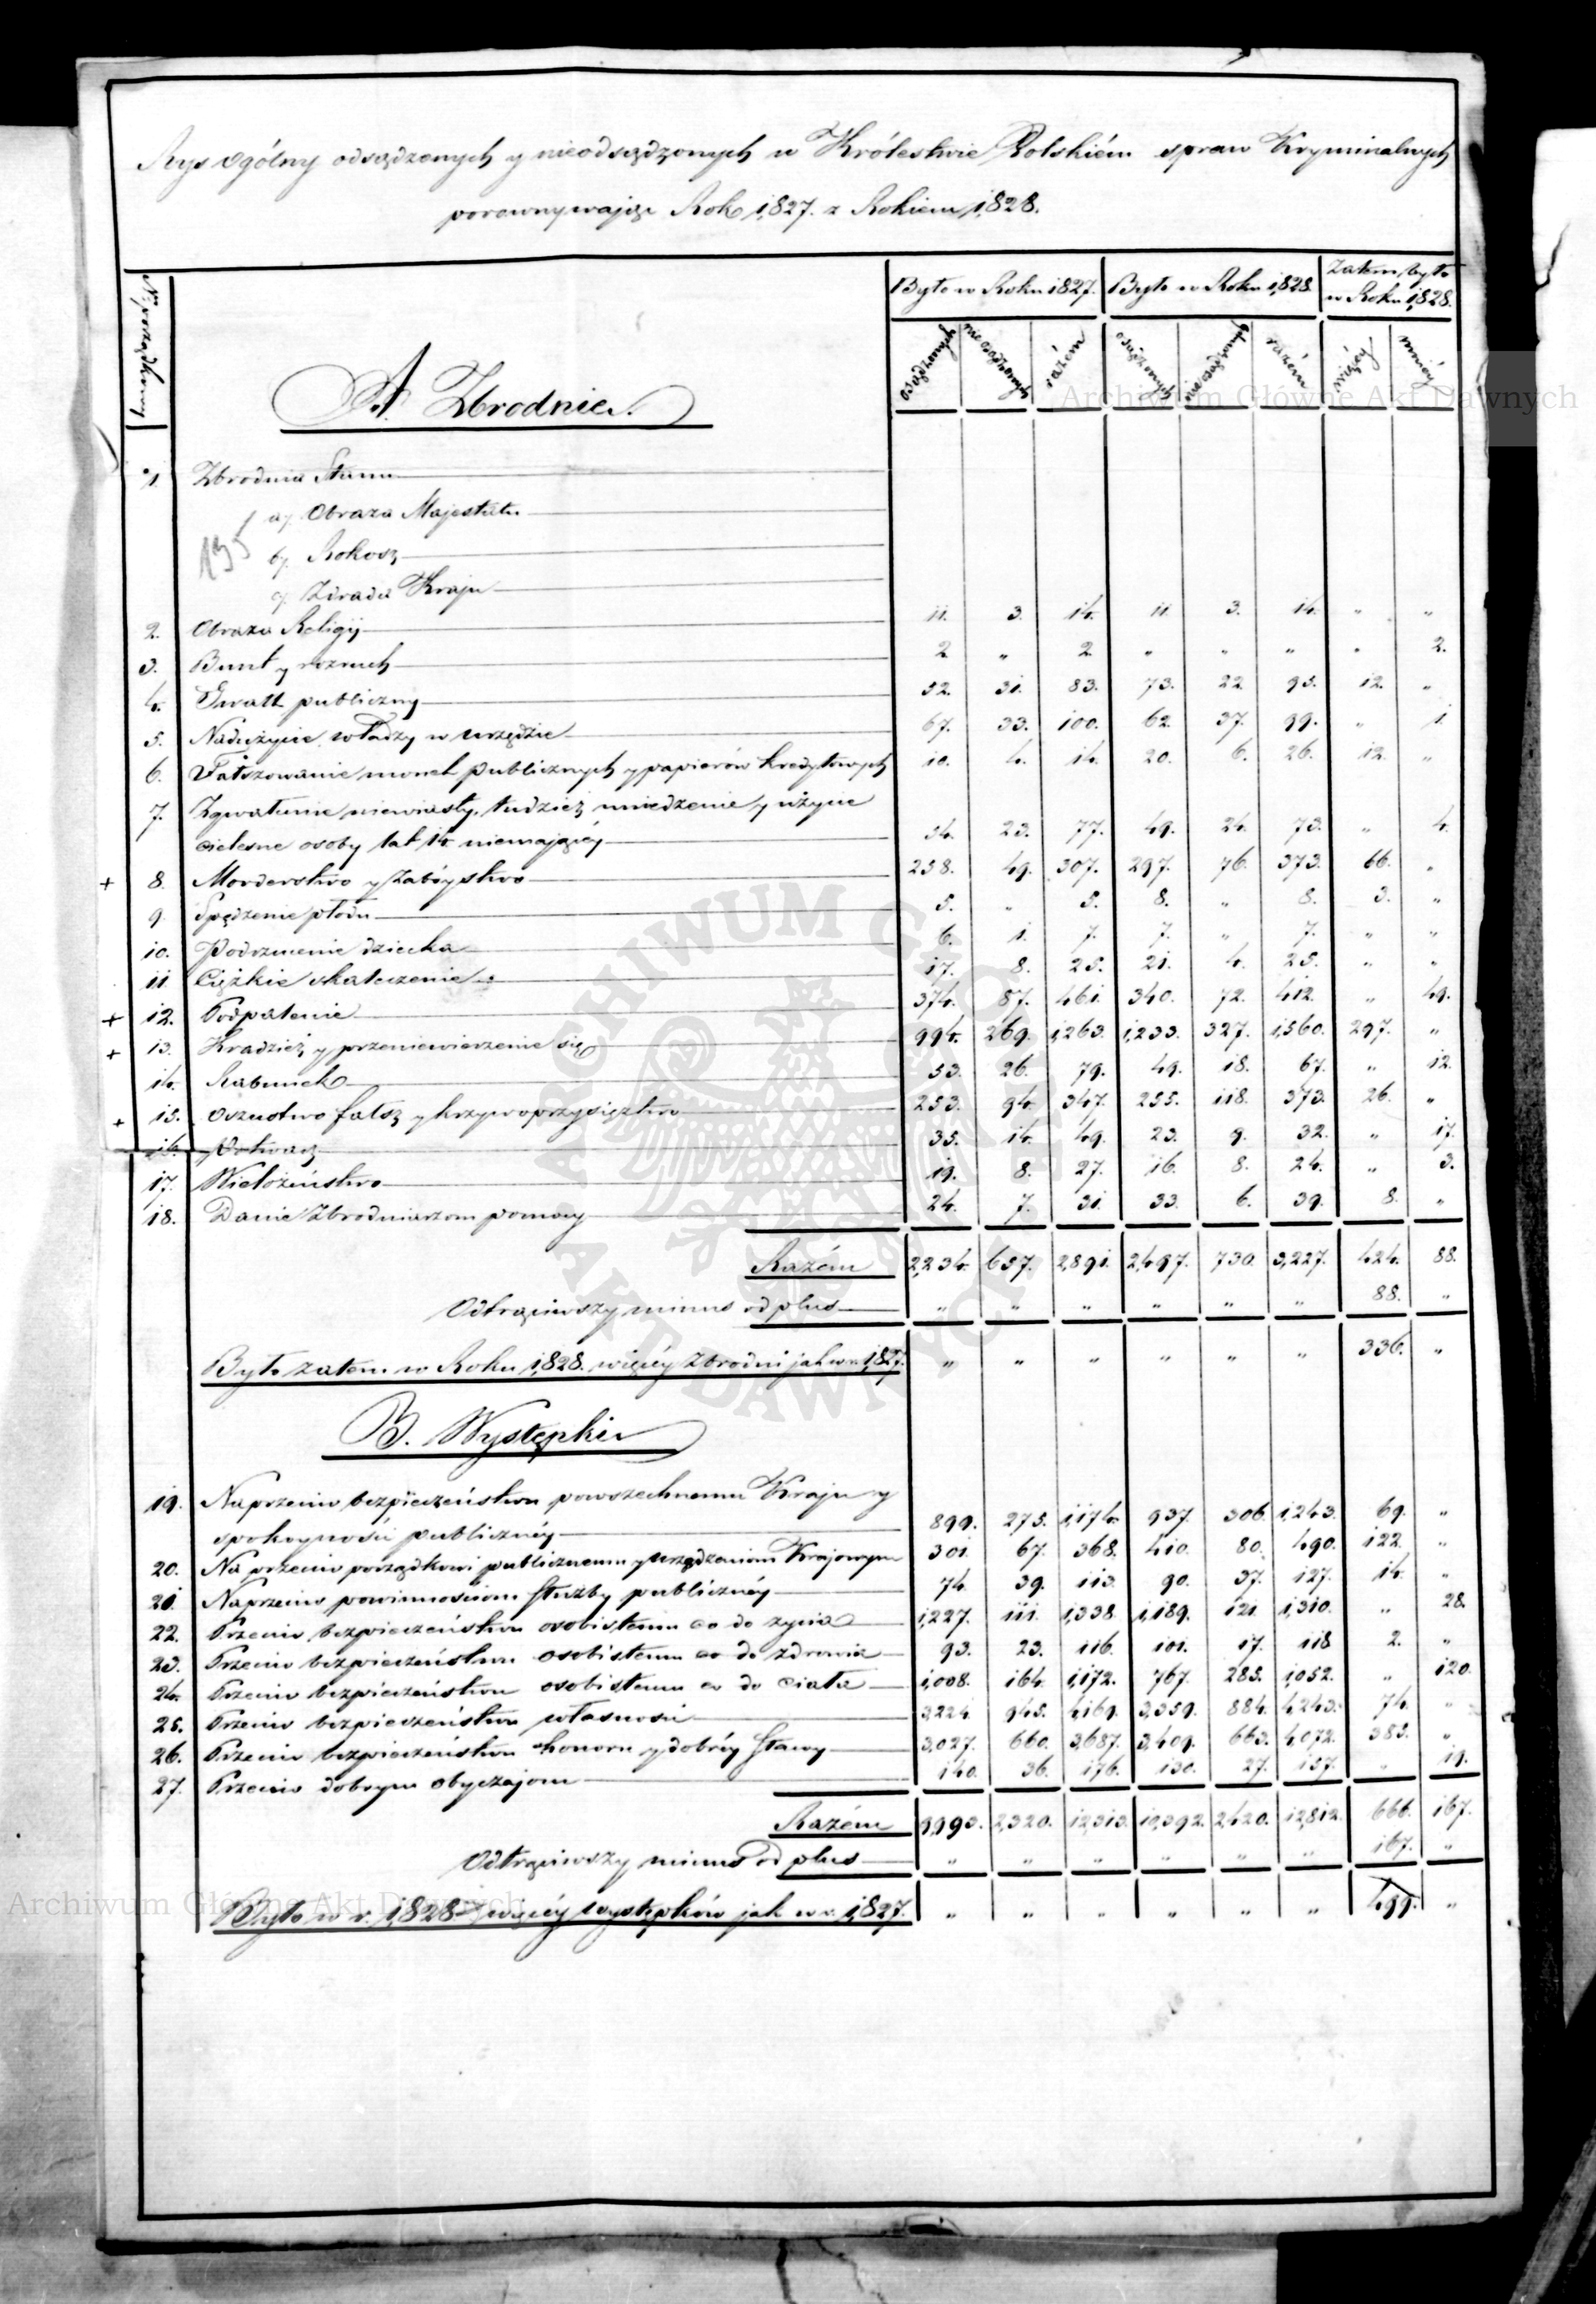 Rys ogólny odsądzonych y nieodsądzonych w Królestwie Polskiém spraw Kryminalnych
porównywając Rok 1,827. z Rokiem 1,828.
Nr porządkowy
Było w Roku 1827. Było w Roku 1,828. Zatem było w Roku 1,828.
osądzonych nieosądzonych razém osądzonych nieosądzonych razém więcéy mniéy
A. Zbrodnie.
1. Zbrodnia Stanu
a/. Obraza Majestatu
b/. Rokosz
c/. Zdrada Kraju
2. Obraza Religij 11. 3. 14. 11. 3. 14. „ „
3. Bunt y rozruch 2 „ 2. „ „ „ „ 2.
4. Gwałt publiczny 52. 31. 83. 73. 22. 95. 12. „
5. Nadużycie władzy w urzędzie 67. 33. 100. 62. 37. 99. „ 1.
6. Fałszowanie monet publicznych y papierów kredytowych 10. 4. 14. 20. 6. 26. 12. „
7. Zgwałcenie niewiasty, tudzież uwiedzenie y użycie
cielesne osoby lat 14 niemaiącéy 54. 23. 77. 49. 24. 73. „ 4.
+ 8. Morderstwo y Zabóystwo 258. 49. 307. 297. 76. 373. 66. „
9. Spędzenie płodu 5. „ 5. 8. „ 8. 3. „
10. Podrzucenie dziecka 6. 1. 7. 7. „ 7. „ „
11. Ciężkie skaleczenie 17. 8. 25. 21. 4. 25. „ „
+ 12. Podpalenie 374. 87. 461. 340. 72. 412. „ 49.
+ 13. Kradzież y przeniewierzenie się 994. 269. 1,263. 1,233. 327. 1,560. 297. „
14. Rabunek 53. 26. 79. 49. 18. 67. „ 12.
+ 15. Oszustwo fałsz y krzywoprzysięztwo 253. 94. 347. 255. 118. 373. 26. „
16. Potwarz 35. 14. 49. 23. 9. 32. „ 17.
17. Wielożeństwo 19. 8. 27. 16. 8. 24. „ 3.
18. Danie Zbrodniarzom pomocy 24. 7. 31. 33. 6. 39. 8. „
Razém 2,234. 657. 2,891. 2,497. 730. 3,227. 424. 88.
Odtrąciwszy minus od plus „ „ „ „ „ „ 88. „
Było zatem w Roku 1,828. więcéy Zbrodni jak w r. 1,827. „ „ „ „ „ „ 336. „
B. Występki
19. Naprzeciw bezpieczeństwu powszechnemu Kraju y
spokoyności publicznéy 899. 275. 1,174. 937. 306. 1,243. 69. „
20. Naprzeciw porządkowi publicznemu y urządzeniom Krajowym 301. 67. 368. 410. 80. 490. 122. „
21. Naprzeciw powinnościom służby publicznéy 74. 39. 113. 90. 37. 127. 14. „
22. Przeciw bezpieczeństwu osobistemu co do życia 1,227. 111. 1,338. 1,189. 121. 1,310. „ 28.
23. Przeciw bezpieczeństwu osobistemu co do zdrowia 93. 23. 116. 101. 17. 118 2. „
24. Przeciw bezpieczeństwu osobistemu co do ciała 1,008. 164. 1,172. 767. 285. 1,052. „ 120.
25. Przeciw bezpieczeństwu własności 3,224. 945. 4,169. 3,359. 884. 4,243. 74. „
26. Przeciw bezpieczeństwu honoru y dobréy sławy 3,027. 660. 3,687. 3,409. 663. 4,072. 385. „
27. Przeciw dobrym obyczajom 140. 36. 176. 130. 27. 157. „ 19.
Razém 9,993. 2,320. 12,313. 10,392. 2,420. 12,812. 666. 167.
Odtrąciwszy minus od plus „ „ „ „ „ „ 167. „
Było w r. 1,828 więcéy występków jak w r. 1,827. „ „ „ „ „ „ 499. „
Archiwum Główne Akt Dawnych
ARCHIWUM GŁÓWNE AKT DAWNYCH
Archiwum Główne Akt Dawnych